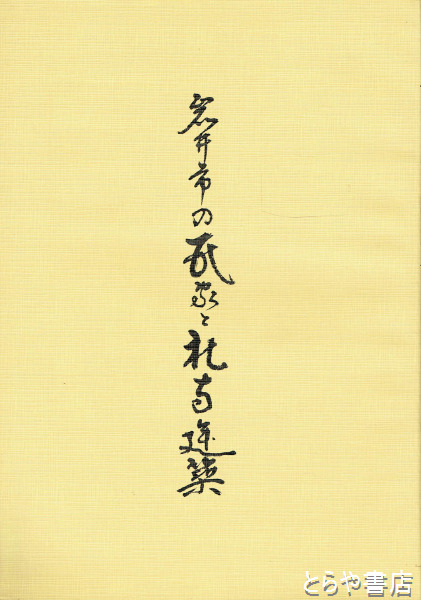 岩井市の民家と社寺建築
とらや書店